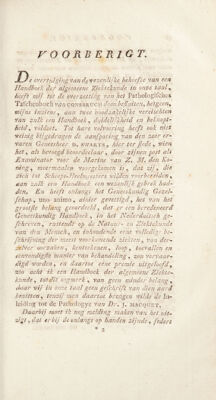 VOORBERIGT.
De overtuiging van de wezenlijke behoefte van een
Handboek der algemeene Ziektekunde in onze taal,
heeft mij tot de overzetting van het Pathologisches
Taschenbuch van CONSBRUCH doen besluiten, hetgeen,
mijns inziens, aan twee noodzakelijke vereischten
van zulk een Handboek, duidelijkheid en beknopt-
heid, voldoet. Tot hare volvoering heeft ook niet
weinig bijgedragen de aansporing van den zeer er-
varen Geneesheer
als, als bevoegd beoordeelaar, door zijnen post als
Examinator voor de Marine van Z. M. den Ko-
ning, meermalen voorgekomen is, dat zij, die
zich tot Scheeps-Heelmeesters wilden voorbereiden,
aan zulk een Handboek een wezenlijk gebrek had-
den. En heeft onlangs het Geneeskundig Gezel-
schap,
grootste belang geoordeeld, dat er een beredeneerd
Geneeskundig Handboek, in het Nederduitsch ge-
schreven, rustende op de Natuur- en Ziektekunde
van den Mensch, en behoudende eene volledig be-
schrijving der meest voorkomende ziekten, van der-
zelver oorzaken, kenteekenen, loop, toevallen en
eenvoudigste manier van behandeling, zou vervaar-
digd worden, en daartoe eene premie uitgeloofd,
zoo acht ik een Handboek der algemeene Ziekte-
kunde, van geen minder belang,
daar wij in onze taal geen geschrift van dien aard
bezitten, tenzij men daartoe brengen wilde de In-
leiding tot de Pathologye van Dr. J. MACQUET.
Daarbij moet ik nog melding maken van het nut-
tigs, dat er bij de onlangs op handen zijnde, sedert
* 2